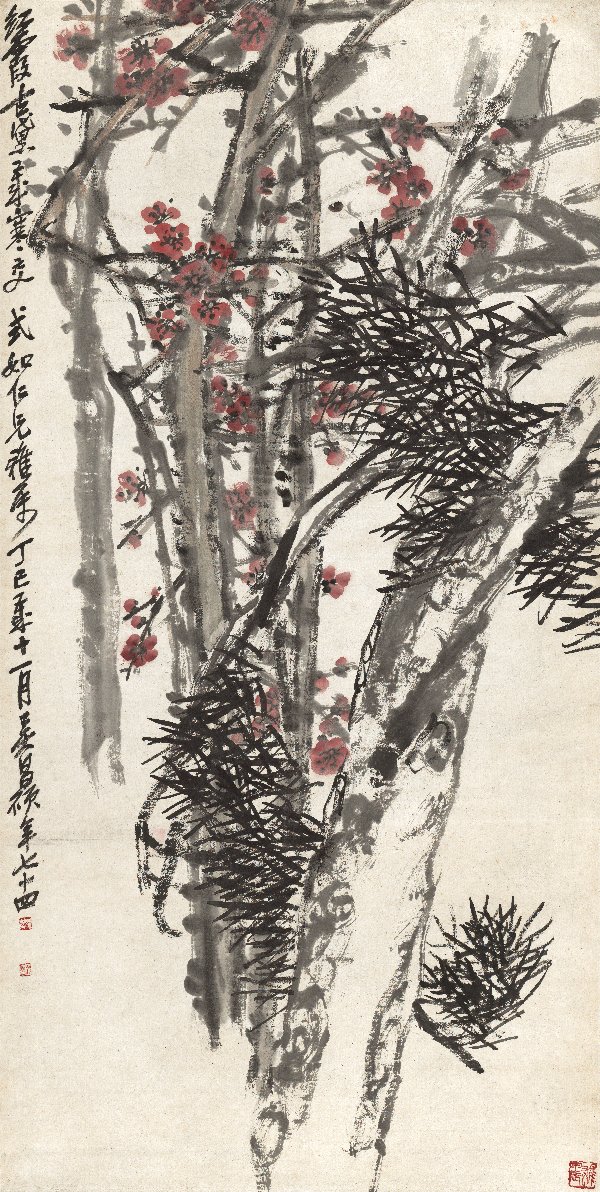 紅霞古黛歲寒交 式如仁兄雅屬 丁巳歲十一月 吳昌碩年七十四